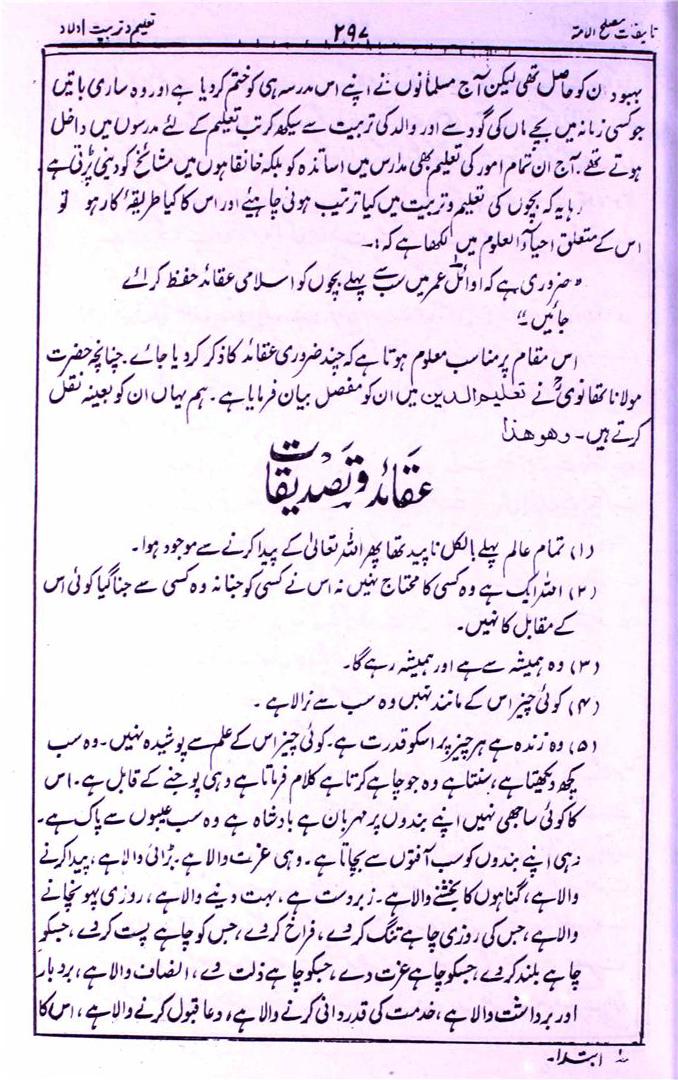 تالیفات مصلح الامۃ
۲۹۷
تعلیم و تربیت اولاد
یہود ن کو حاصل تھی لیکن آج مسلمانوں نے اپنے اس مدرسہ ہی کو ختم کر دیا ہے اور وہ ساری باتیں
جو کسی زمانہ میں بچے ماں کی گود سے اور والد کی تربیت سے سیکھ کر تب تعلیم کے لئے مدرسوں میں داخل
ہوتے تھے۔ آج ان تمام امور کی تعلیم بھی مدارس میں اساتذہ کو بلکہ خانقاہوں میں مشائخ کو دینی پڑتی ہے
رہا یہ کہ بچوں کی تعلیم و تربیت میں کیا ترتیب ہونی چاہیئے اور اس کا کیا طریقۂ کار ہو تو
اس کے متعلق احیاء العلوم میں لکھا ہے کہ :۔
" ضروری ہے کہ اوائل عمر میں سب سے پہلے بچوں کو اسلامی عقائد حفظ کرائے
جائیں ۔"
اس مقام پر مناسب معلوم ہوتا ہے کہ چند ضروری عقائد کا ذکر کر دیا جائے۔ چنانچہ حضرت
مولانا تھانویؒ نے تعلیم الدین میں ان کو مفصل بیان فرمایا ہے۔ ہم یہاں ان کو بعینہ نقل
کرتے ہیں۔ وھو ھذا
عقائد و تصدیقات
(۱) تمام عالم پہلے بالکل ناپید تھا پھر اللہ تعالیٰ کے پیدا کرنے سے موجود ہوا۔
(۲) اللہ ایک ہے وہ کسی کا محتاج نہیں نہ اس نے کسی کو جنا نہ وہ کسی سے جنا گیا کوئی اس
کے مقابل کا نہیں۔
(۳) وہ ہمیشہ سے ہے اور ہمیشہ رہے گا۔
(۴) کوئی چیز اس کے مانند نہیں وہ سب سے نرالا ہے ۔
(۵) وہ زندہ ہے ہر چیز پر اسکو قدرت ہے۔ کوئی چیز اس کے علم سے پوشیدہ نہیں۔ وہ سب
کچھ دیکھتا ہے، سنتا ہے وہ جو چاہے کرتا ہے کلام فرماتا ہے وہی پوجنے کے قابل ہے۔ اس
کا کوئی ساجھی نہیں اپنے بندوں پر مہربان ہے بادشاہ ہے وہ سب عیبوں سے پاک ہے۔
وہی اپنے بندوں کو سب آفتوں سے بچاتا ہے۔ وہی عزت والا ہے۔ بڑائی والا ہے، پیدا کرنے
والا ہے، گناہوں کا بخشنے والا ہے۔ زبردست ہے، بہت دینے والا ہے، روزی پہونچانے
والا ہے، جس کی روزی چاہے تنگ کر دے، فراخ کر دے، جس کو چاہے پست کر دے، جسکو
چاہے بلند کر دے، جسکو چاہے عزت دے، جسکو چاہے ذلت دے، انصاف والا ہے، بردبار
اور برداشت والا ہے، خدمت کی قدردانی کرنے والا ہے، دعا قبول کرنے والا ہے، اس کا
ابتدا۔